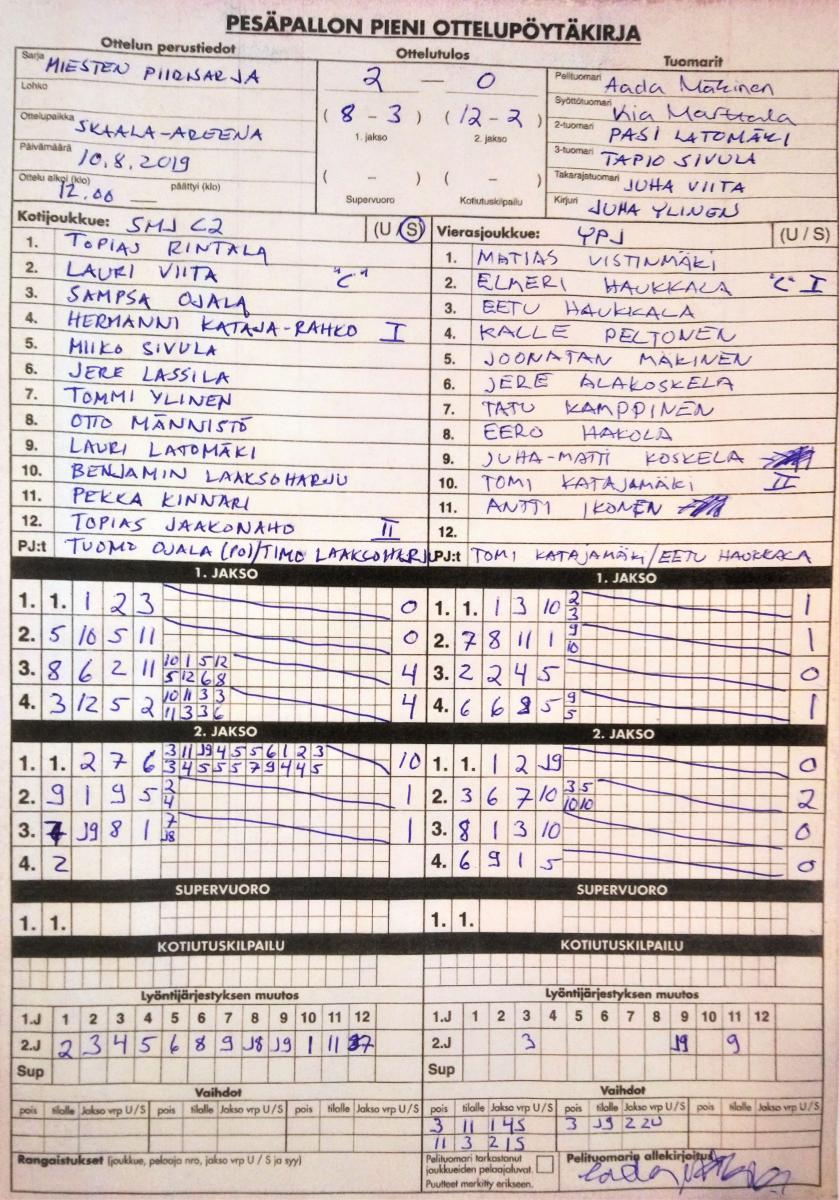 PESÄPALLON PIENI OTTELUPÖYTÄKIRJA
Ottelun perustiedot
Sarja MIESTEN PIIRISARJA
Lohko
Ottelupaikka SKAALA-AREENA
Päivämäärä 10.8.2019
Ottelu alkoi (klo) 12.00 päättyi (klo)
Ottelutulos
2 — 0
( 8 - 3 ) ( 12 - 2 )
1. jakso 2. jakso
( - ) ( - )
Supervuoro Kotiutuskilpailu
Tuomarit
Pelituomari Aada Mäkinen
Syöttötuomari Kia Marttala
2-tuomari PASI LATOMÄKI
3-tuomari TAPIO SIVULA
Takarajatuomari JUHA VIITA
Kirjuri JUHA YLINEN
Kotijoukkue: SMJ C2 (U / S)
1. TOPIAS RINTALA
2. LAURI VIITA "C"
3. SAMPSA OJALA
4. HERMANNI KATAJA-RAHKO I
5. MIIKO SIVULA
6. JERE LASSILA
7. TOMMI YLINEN
8. OTTO MÄNNISTÖ
9. LAURI LATOMÄKI
10. BENJAMIN LAAKSOHARJU
11. PEKKA KINNARI
12. TOPIAS JAAKONAHO II
PJ:t TUOMO OJALA (PO)/TIMO LAAKSOHARJU
Vierasjoukkue: YPJ (U / S)
1. MATIAS VISTINMÄKI
2. ELMERI HAUKKALA "C" I
3. EETU HAUKKALA
4. KALLE PELTONEN
5. JOONATAN MÄKINEN
6. JERE ALAKOSKELA
7. TATU KAMPPINEN
8. EERO HAKOLA
9. JUHA-MATTI KOSKELA
10. TOMI KATAJAMÄKI II
11. ANTTI IKONEN
12.
PJ:t TOMI KATAJAMÄKI/EETU HAUKKALA
1. JAKSO
1. 1. 1 2 3 0
2. 5 10 5 11 0
3. 8 6 2 11 10 1 5 12 4
5 12 6 8
4. 3 12 5 2 10 11 3 3 4
11 3 3 6
1. JAKSO
1. 1. 1 3 10 2 1
3
2. 7 8 11 1 9 1
10
3. 2 2 4 5 0
4. 6 6 8 5 9 1
5
2. JAKSO
1. 1. 2 7 6 3 11 J9 4 5 5 6 1 2 3 10
3 4 5 5 5 7 9 4 4 5
2. 9 1 9 5 2 1
4
3. 7 J9 8 1 7 1
J8
4. 2
2. JAKSO
1. 1. 1 2 J9 0
2. 3 6 7 10 3 5 2
10 10
3. 8 1 3 10 0
4. 6 9 1 5 0
SUPERVUORO
1. 1.
SUPERVUORO
1. 1.
KOTIUTUSKILPAILU
KOTIUTUSKILPAILU
Lyöntijärjestyksen muutos
1.J 1 2 3 4 5 6 7 8 9 10 11 12
2.J 2 3 4 5 6 8 9 J8 J9 1 11
Sup
Lyöntijärjestyksen muutos
1.J 1 2 3 4 5 6 7 8 9 10 11 12
2.J 3 J9 9
Sup
Vaihdot
pois tilalle Jakso vrp U / S pois tilalle Jakso vrp U / S pois tilalle Jakso vrp U / S
Vaihdot
pois tilalle Jakso vrp U / S pois tilalle Jakso vrp U / S pois tilalle Jakso vrp U / S
3 11 1 4 S 3 J9 2 2 U
11 3 2 1 S
Rangaistukset (joukkue, pelaaja nro, jakso vrp U / S ja syy)
Pelituomari tarkastanut
joukkueiden pelaajaluvat.
Puutteet merkitty erikseen.
Pelituomarin allekirjoitus